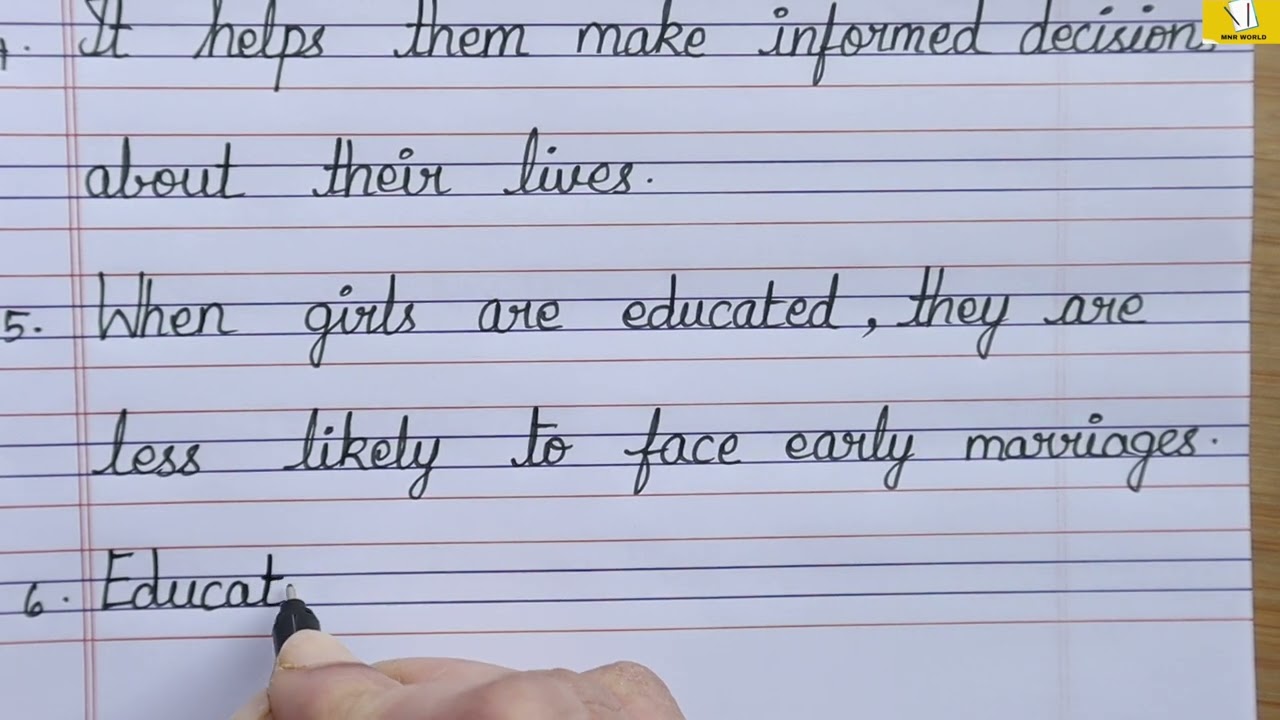 It helps them make informed decision
MNR WORLD
about their lives.
5. When girls are educated, they are
less likely to face early marriages.
6. Educat